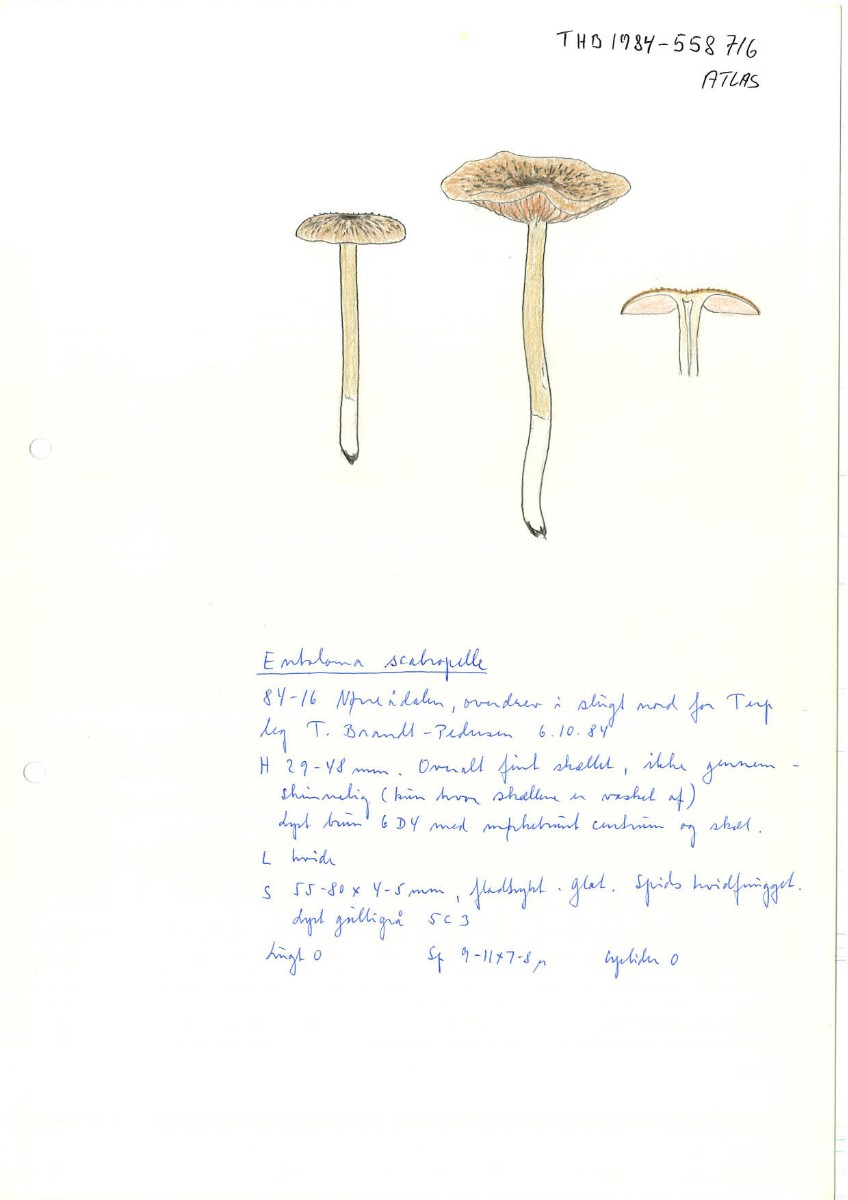 THB 1984-558 716
ATLAS
Entoloma scabropelle
84-16 Nørreådalen, overdrev i slugt nord for Terp
leg T. Brandt-Pedersen 6.10.84
H 29-48 mm. Overalt fint skællet, ikke gennem-
skinnelig (kun hvor skællene er vasket af)
Lyst brun 6D4 med mørkebrunt centrum og skæl.
L hvide
S 55-80 x 4-5 mm, fladtrykt. Glat. Spids hvidfnugget.
Lyst gulligrå 5C3
Lugt 0 Sp 9-11x7-8 µ Cystider 0